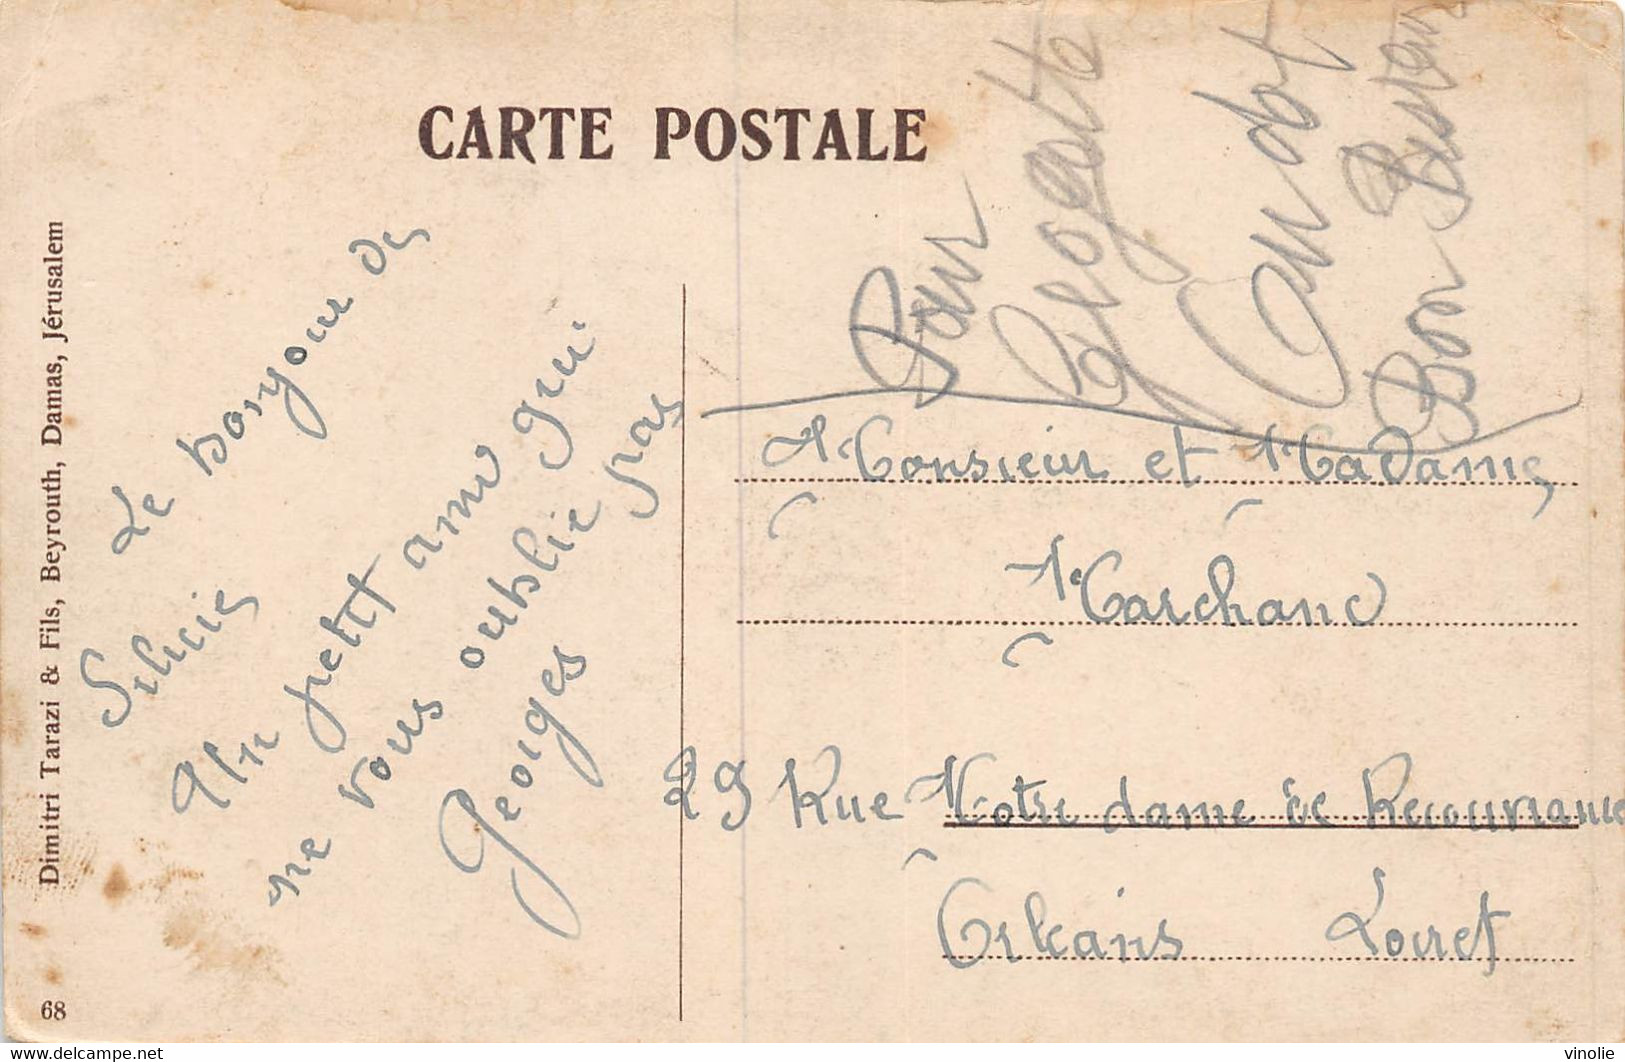 CARTE POSTALE
Dimitri Tarazi & Fils, Beyrouth, Damas, Jérusalem
68
Le bonjour de
Silicie
Un petit ami qui
ne vous oublie pas
Georges
Pour
Georgette
Bon
Monsieur et Madame
Marchand
29 Rue Notre dame de Recouvrance
Orléans Loiret
www.delcampe.net
vinolie